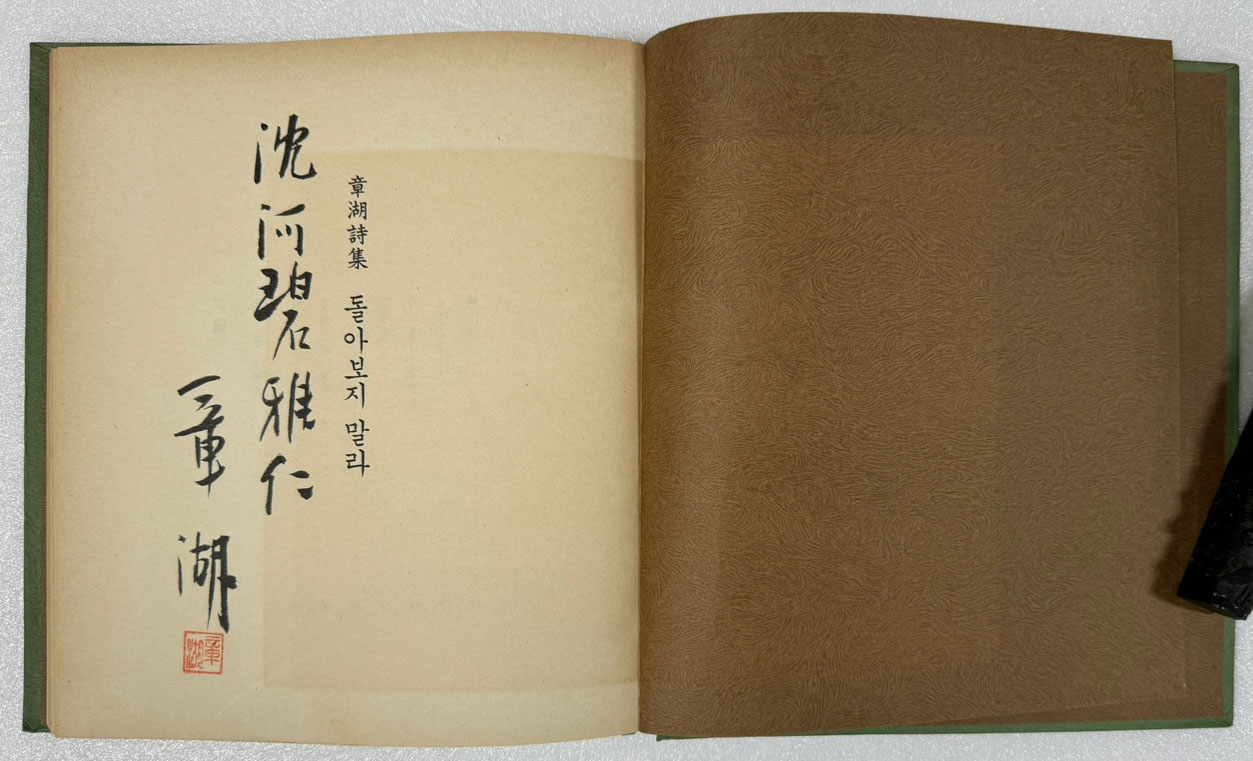 章湖詩集 돌아보지 말라
沈河碧雅仁
章湖
章湖